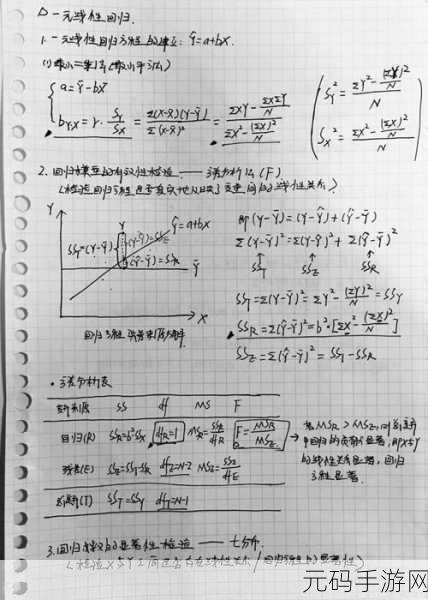 一元线性回归.
1. 一元线性回归方程的建立: Ŷ=a+bX.
(1) 最小二乘法(最小平方法)
a=Ȳ-bX̄
b_{Y.X}=r·S_Y/S_X=Σ(X-X̄)(Y-Ȳ)/Σ(X-X̄)²=(ΣXY-ΣXΣY/N)/(ΣX²-(ΣX)²/N)
S_Y²=(ΣY²-(ΣY)²/N)/N
S_X²=(ΣX²-(ΣX)²/N)/N
2. 回归模型的有效性检验 —— 方差分析法 (F)
(检验回归方程是否真实地反映了变量间的线性关系.)
Y
Y
Ŷ=a+bX
SS_T=(Y-Ȳ)
(Y-Ŷ)=SS_E
(Ŷ-Ȳ)=SS_R
Ȳ
X
回归方程
即 (Y-Ȳ)=(Y-Ŷ)+(Ŷ-Ȳ)
Σ(Y-Ȳ)²=Σ(Y-Ŷ)²+Σ(Ŷ-Ȳ)²
SS_T SS_E SS_R
SS_T=Σ(Y-Ȳ)²=ΣY²-(ΣY)²/N=SS_Y
SS_R=Σ(Ŷ-Ȳ)²=b²·[ΣX²-(ΣX)²/N]
SS_E=Σ(Ŷ-Y)²=SS_T-SS_R
·方差分析表
变异来源 SS df MS F
回归(R) SS_R=b²SS_X df_R=1 MS_R=SS_R/df_R F=MS_R/MS_E
残差(E) SS_E=SS_T-SS_R df_E=N-2 MS_E=SS_E/df_E
总变异(T) SS_T=SS_Y df_T=N-1
→ 若MS_R>MS_E, 则
回归的贡献显著, 即X与Y
的线性关系显著, 回归
方程显著.
3. 回归系数的显著性检验 —— t分布.
(检验X与Y之间是否存在线性关系/回归方程的显著性)
元码手游网